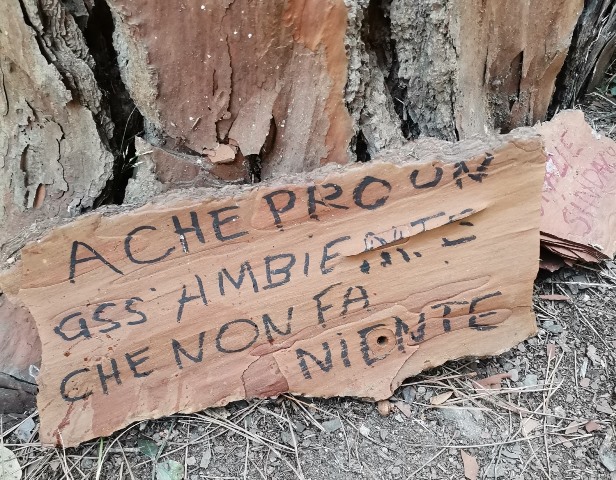 A CHE PRO UN
ASS' AMBIENTE
CHE NON FA
NIENTE